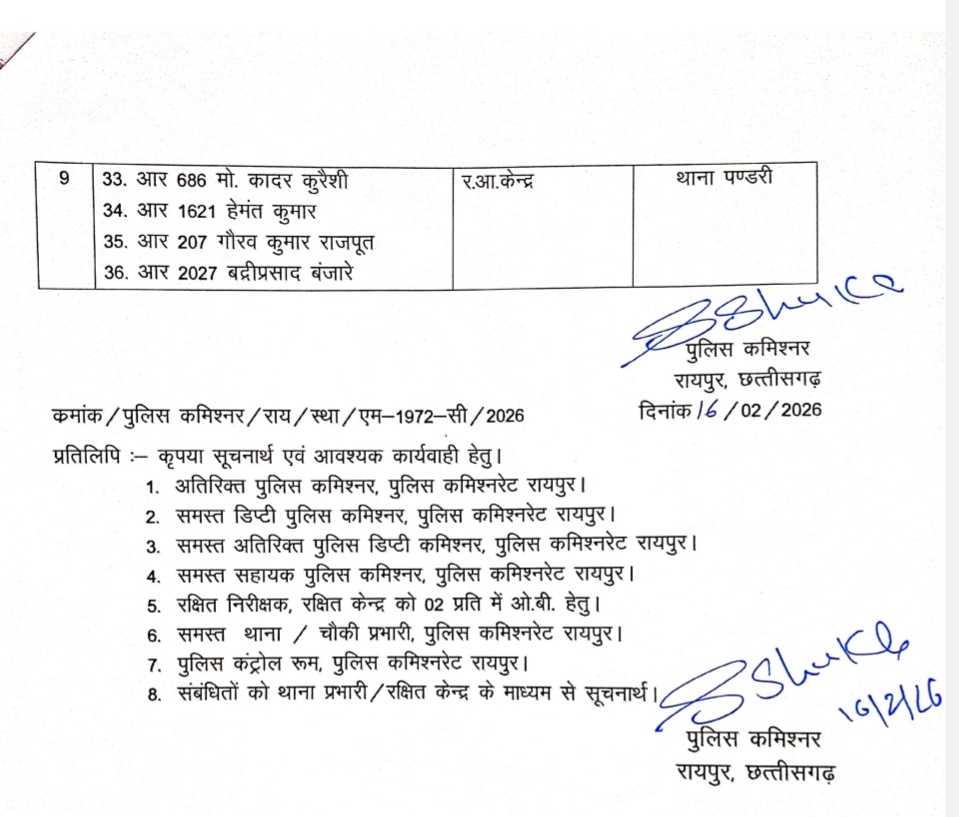 9 33. आर 686 मो. कादर कुरैशी र.आ.केन्द्र थाना पण्डरी
34. आर 1621 हेमंत कुमार
35. आर 207 गौरव कुमार राजपूत
36. आर 2027 बद्रीप्रसाद बंजारे
SShukla
पुलिस कमिश्नर
रायपुर, छत्तीसगढ़
कमांक/पुलिस कमिश्नर/राय/स्था/एम–1972–सी/2026 दिनांक 16/02/2026
प्रतिलिपि :– कृपया सूचनार्थ एवं आवश्यक कार्यवाही हेतु।
1. अतिरिक्त पुलिस कमिश्नर, पुलिस कमिश्नरेट रायपुर।
2. समस्त डिप्टी पुलिस कमिश्नर, पुलिस कमिश्नरेट रायपुर।
3. समस्त अतिरिक्त पुलिस डिप्टी कमिश्नर, पुलिस कमिश्नरेट रायपुर।
4. समस्त सहायक पुलिस कमिश्नर, पुलिस कमिश्नरेट रायपुर।
5. रक्षित निरीक्षक, रक्षित केन्द्र को 02 प्रति में ओ.बी. हेतु।
6. समस्त थाना / चौकी प्रभारी, पुलिस कमिश्नरेट रायपुर।
7. पुलिस कंट्रोल रूम, पुलिस कमिश्नरेट रायपुर।
8. संबंधितों को थाना प्रभारी/रक्षित केन्द्र के माध्यम से सूचनार्थ।
SShukla
16/2/26
पुलिस कमिश्नर
रायपुर, छत्तीसगढ़